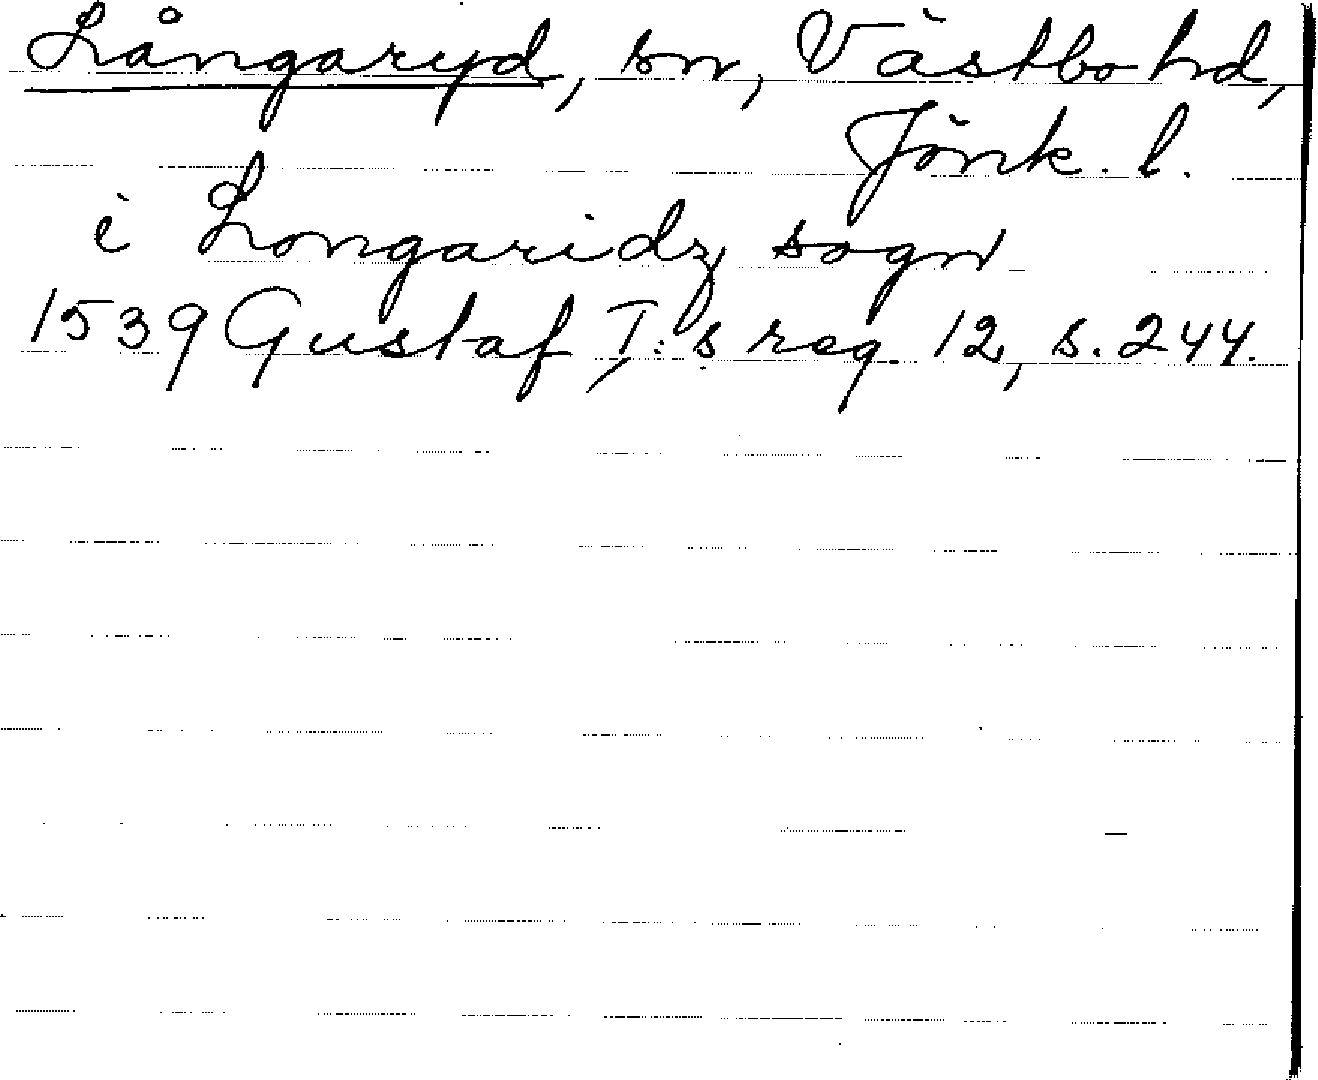 Långaryd, sn, Västbo hd,
Jönk. l.
i Longaridz sogn
1539 Gustaf I:s reg 12, s. 244.